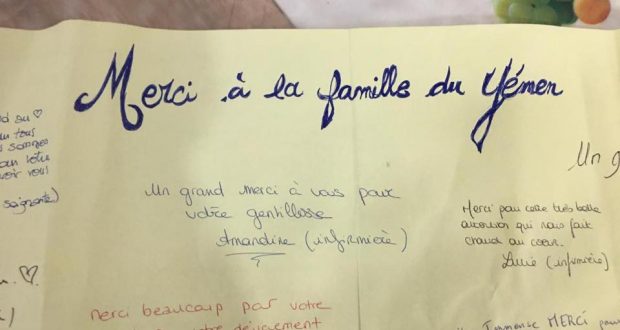 Merci à la famille du Yémen
tous
sommes
vous
saignante)
Un grand merci à vous pour
votre gentillesse
Amandine (infirmière)
Un g
Merci pour cette très belle
attention qui nous fait
chaud au coeur.
Lucie (infirmière)
merci beaucoup pour votre
Immense MERCI pour